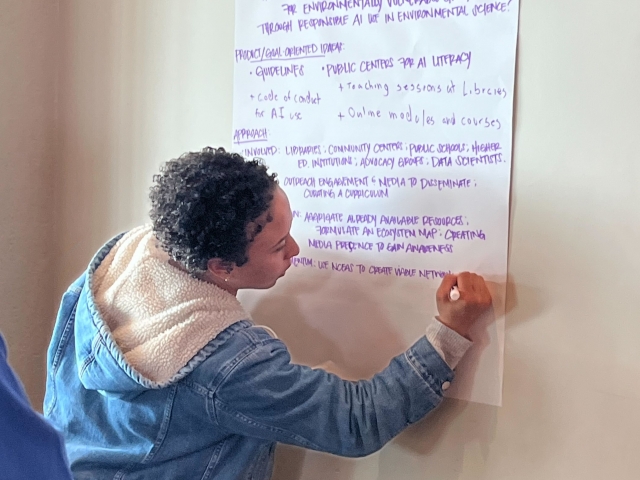 FOR ENVIRONMENTALLY VULNERABLE
THROUGH RESPONSIBLE AI USE IN ENVIRONMENTAL SCIENCE?
PRODUCT/GOAL-ORIENTED IDEA
• GUIDELINES • PUBLIC CENTERS FOR AI LITERACY
+ Teaching sessions at Libraries
+ Code of conduct
for AI use
+ Online modules and courses
APPROACH
INVOLVED: LIBRARIES; COMMUNITY CENTERS; PUBLIC SCHOOLS; HIGHER
ED. INSTITUTIONS; ADVOCACY GROUPS; DATA SCIENTISTS.
OUTREACH ENGAGEMENT & MEDIA TO DISSEMINATE;
CURATING A CURRICULUM
AGGREGATE ALREADY AVAILABLE RESOURCES;
FORMULATE AN ECOSYSTEM MAP; CREATING
MEDIA PRESENCE TO GAIN AWARENESS
USE NCEAS TO CREATE VIABLE